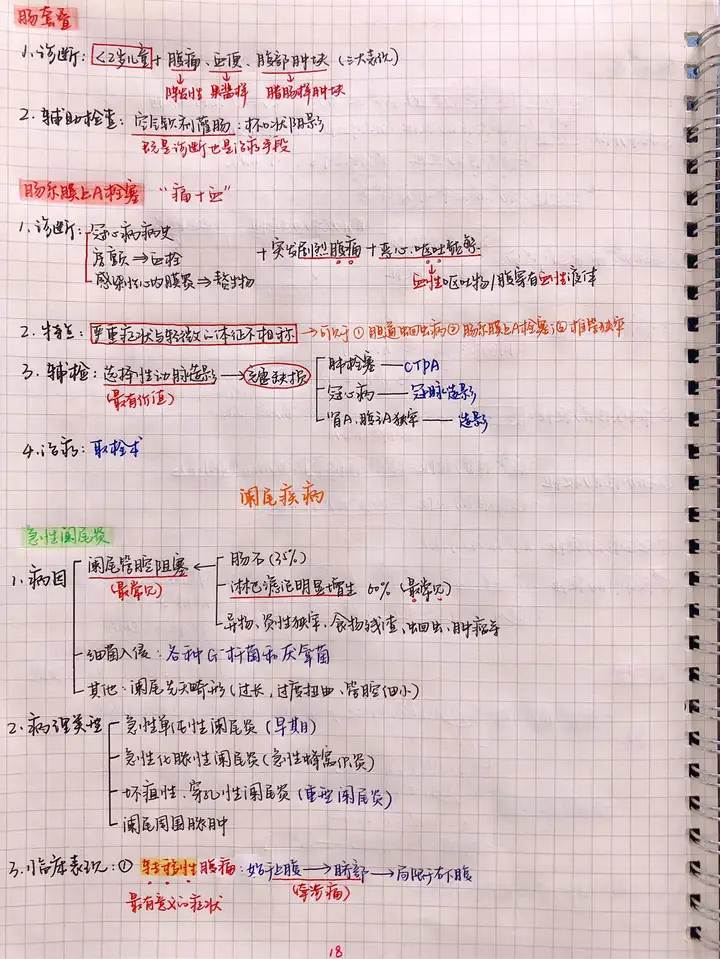 肠套叠
1.诊断:<2岁儿童+腹痛、血便、腹部肿块(三大表现)
阵发性 果酱样 腊肠样肿块
2.辅助检查:空气钡剂灌肠:杯口状阴影
既是诊断也是治疗手段
肠系膜上A栓塞 “痛+血”
1.诊断:冠心病病史
房颤⇒血栓
感染性心内膜炎⇒赘生物
+突发剧烈腹痛+恶心、呕吐频繁
血性呕吐物/腹穿有血性液体
2.特点:严重症状与轻微的体征不相称→可见于①胆道蛔虫病②肠系膜上A栓塞③椎管狭窄
3.辅检:选择性动脉造影→充盈缺损
(最有价值)
肺栓塞——CTPA
冠心病——冠脉造影
肾A、腹主A狭窄——造影
4.治疗:取栓术
阑尾疾病
急性阑尾炎
1.病因
阑尾管腔阻塞←
(最常见)
肠石(35%)
淋巴滤泡明显增生 60%(最常见)
异物、炎性狭窄、食物残渣、蛔虫、肿瘤等
细菌入侵:各种G⁻杆菌和厌氧菌
其他:阑尾先天畸形(过长,过度扭曲、管腔细小)
2.病理类型
急性单纯性阑尾炎(早期)
急性化脓性阑尾炎(急性蜂窝织炎)
坏疽性、穿孔性阑尾炎(重型阑尾炎)
阑尾周围脓肿
3.临床表现:①转移性腹痛:始于上腹→脐部→局限于右下腹
最有意义的症状
(牵涉痛)
18